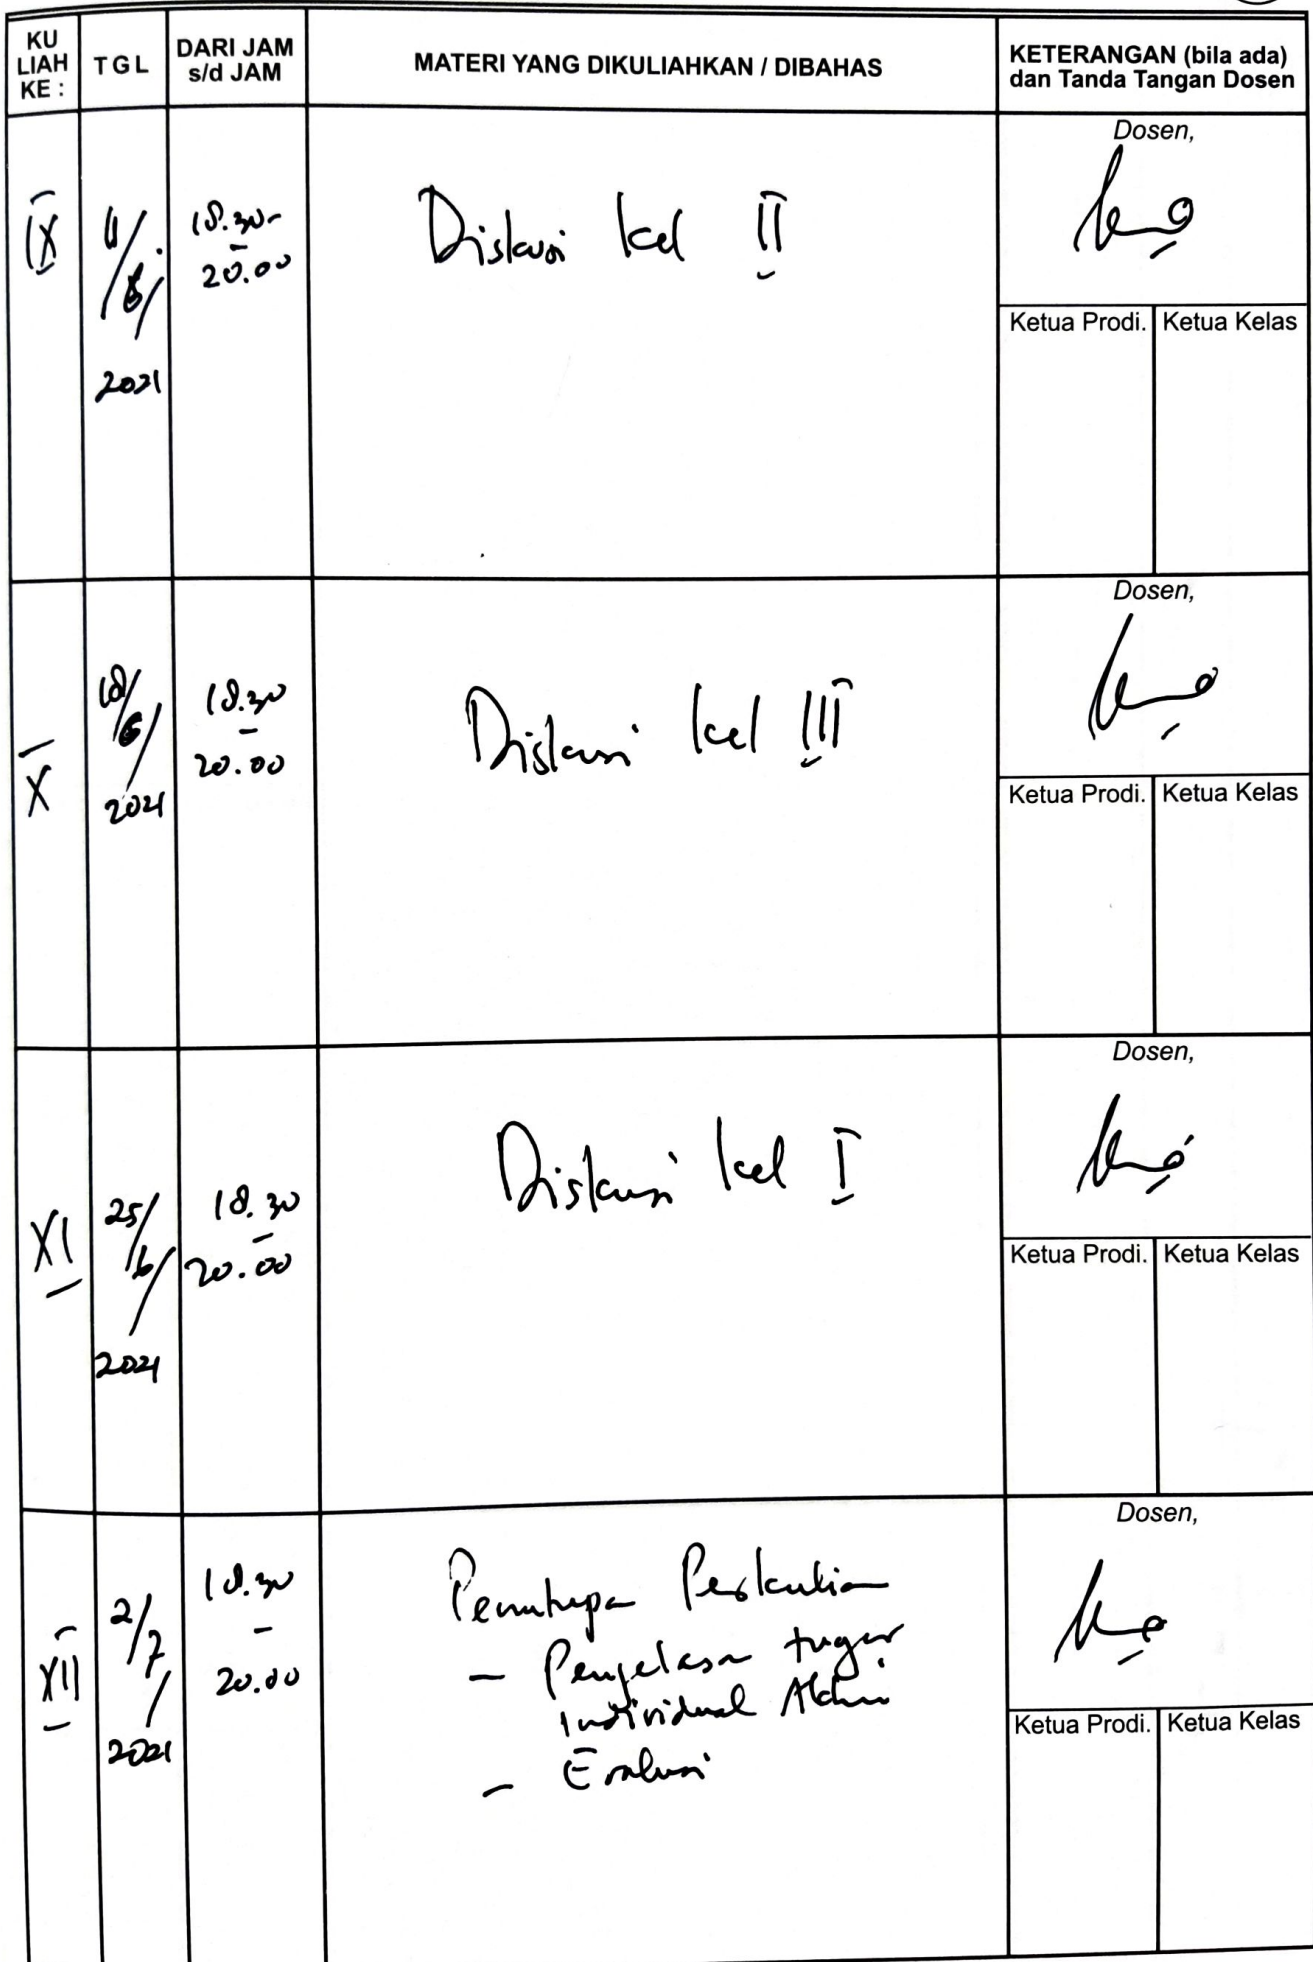 KU
LIAH
KE :
TGL
DARI JAM
s/d JAM
MATERI YANG DIKULIAHKAN / DIBAHAS
KETERANGAN (bila ada)
dan Tanda Tangan Dosen
IX
11/6/
2021
18.30-
-
20.00
Diskusi kel II
Dosen,
Ketua Prodi. Ketua Kelas
X
18/6/
2021
18.30
-
20.00
Diskusi kel III
Dosen,
Ketua Prodi. Ketua Kelas
XI
25/6/
2021
18.30
-
20.00
Diskusi kel I
Dosen,
Ketua Prodi. Ketua Kelas
XII
2/7/
2021
18.30
-
20.00
Penutupa Perkulia
- Penjelasa tugas
Individual Akhir
- Evaluasi
Dosen,
Ketua Prodi. Ketua Kelas